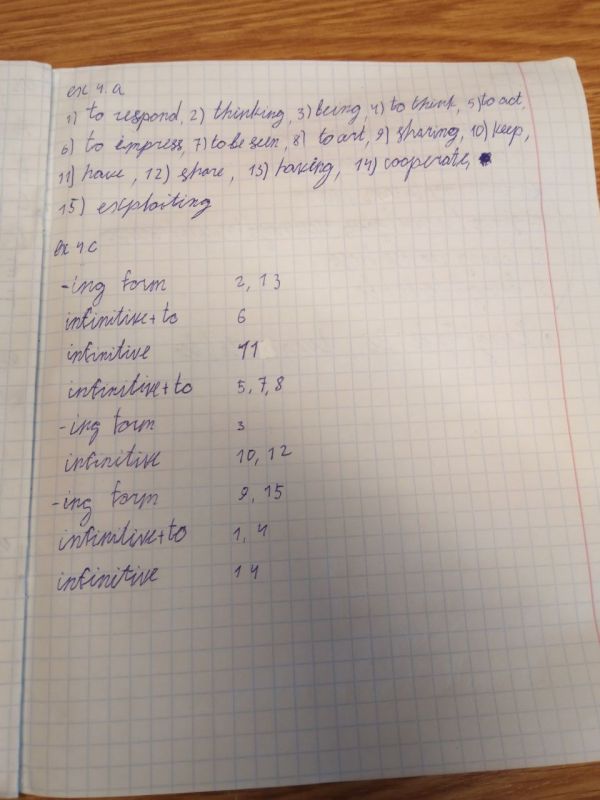 ex 4.a
1) to respond, 2) thinking, 3) being, 4) to think, 5) to act,
6) to impress, 7) to be seen, 8) to act, 9) sharing, 10) keep,
11) have, 12) share, 13) making, 14) cooperate,
15) exploiting
ex 4c
-ing form 2, 13
infinitive + to 6
infinitive 11
infinitive + to 5, 7, 8
-ing form 3
infinitive 10, 12
-ing form 9, 15
infinitive + to 1, 4
infinitive 14